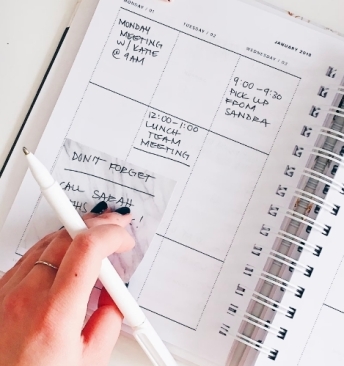 MONDAY / 01
TUESDAY / 02
WEDNESDAY / 03
JANUARY 2018
MONDAY
MEETING
W/ KATIE
@ 9AM
9:00 - 9:30
PICK UP
FROM
SANDRA
12:00 - 1:00
LUNCH
TEAM
MEETING
DON'T FORGET
CALL SARAH